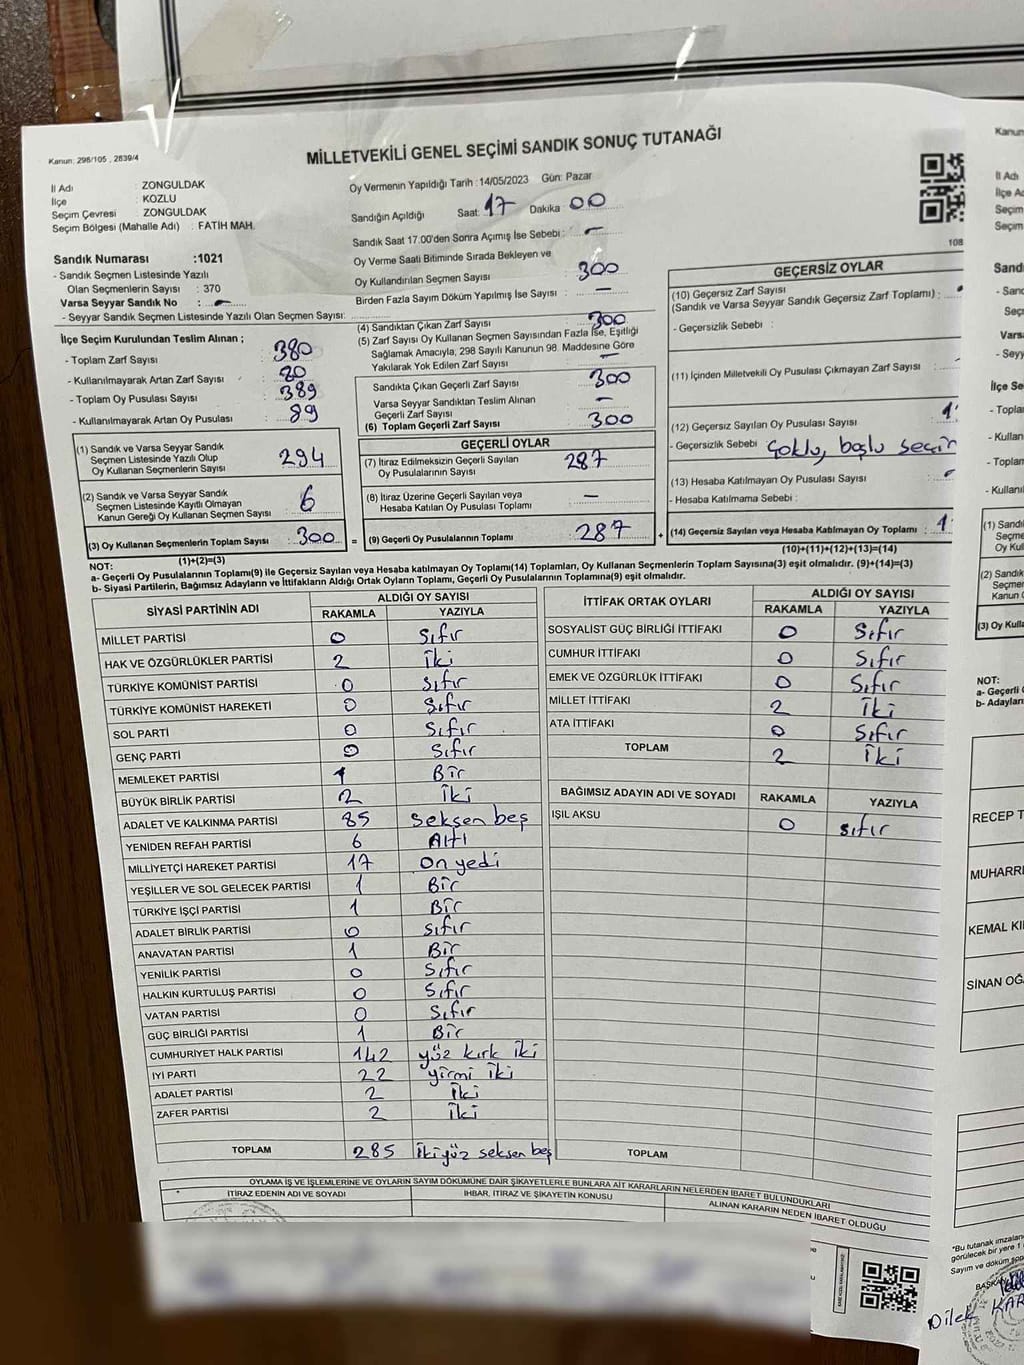 Kanun: 298/105 , 2839/4
MİLLETVEKİLİ GENEL SEÇİMİ SANDIK SONUÇ TUTANAĞI
İl Adı : ZONGULDAK
İlçe : KOZLU
Seçim Çevresi : ZONGULDAK
Seçim Bölgesi (Mahalle Adı) : FATİH MAH.
Sandık Numarası :1021
- Sandık Seçmen Listesinde Yazılı
Olan Seçmenlerin Sayısı : 370
Varsa Seyyar Sandık No : -
- Seyyar Sandık Seçmen Listesinde Yazılı Olan Seçmen Sayısı:
Oy Vermenin Yapıldığı Tarih :14/05/2023 Gün: Pazar
Sandığın Açıldığı Saat: 17 Dakika : 00
Sandık Saat 17.00'den Sonra Açımış İse Sebebi : -
Oy Verme Saati Bitiminde Sırada Bekleyen ve
Oy Kullandırılan Seçmen Sayısı : 300
Birden Fazla Sayım Döküm Yapılmış İse Sayısı : -
108
İlçe Seçim Kurulundan Teslim Alınan ;
- Toplam Zarf Sayısı : 380
- Kullanılmayarak Artan Zarf Sayısı : 80
- Toplam Oy Pusulası Sayısı : 389
- Kullanılmayarak Artan Oy Pusulası : 89
(1) Sandık ve Varsa Seyyar Sandık
Seçmen Listesinde Yazılı Olup
Oy Kullanan Seçmenlerin Sayısı : 294
(2) Sandık ve Varsa Seyyar Sandık
Seçmen Listesinde Kayıtlı Olmayan
Kanun Gereği Oy Kullanan Seçmen Sayısı : 6
(3) Oy Kullanan Seçmenlerin Toplam Sayısı : 300
(1)+(2)=(3)
(4) Sandıktan Çıkan Zarf Sayısı : 300
(5) Zarf Sayısı Oy Kullanan Seçmen Sayısından Fazla İse, Eşitliği
Sağlamak Amacıyla, 298 Sayılı Kanunun 98. Maddesine Göre
Yakılarak Yok Edilen Zarf Sayısı : -
Sandıkta Çıkan Geçerli Zarf Sayısı : 300
Varsa Seyyar Sandıktan Teslim Alınan
Geçerli Zarf Sayısı : -
(6) Toplam Geçerli Zarf Sayısı : 300
GEÇERLİ OYLAR
(7) İtiraz Edilmeksizin Geçerli Sayılan
Oy Pusulalarının Sayısı : 287
(8) İtiraz Üzerine Geçerli Sayılan veya
Hesaba Katılan Oy Pusulası Toplamı : -
= (9) Geçerli Oy Pusulalarının Toplamı : 287 +
GEÇERSİZ OYLAR
(10) Geçersiz Zarf Sayısı
(Sandık ve Varsa Seyyar Sandık Geçersiz Zarf Toplamı) :
- Geçersizlik Sebebi :
(11) İçinden Milletvekili Oy Pusulası Çıkmayan Zarf Sayısı :
(12) Geçersiz Sayılan Oy Pusulası Sayısı : 1
- Geçersizlik Sebebi : Çoklu, boşlu seçim
(13) Hesaba Katılmayan Oy Pusulası Sayısı : -
- Hesaba Katılmama Sebebi :
(14) Geçersiz Sayılan veya Hesaba Katılmayan Oy Toplamı : 1
(10)+(11)+(12)+(13)=(14)
NOT:
a- Geçerli Oy Pusulalarının Toplamı(9) ile Geçersiz Sayılan veya Hesaba katılmayan Oy Toplamı(14) Toplamları, Oy Kullanan Seçmenlerin Toplam Sayısına(3) eşit olmalıdır. (9)+(14)=(3)
b- Siyasi Partilerin, Bağımsız Adayların ve İttifakların Aldığı Ortak Oyların Toplamı, Geçerli Oy Pusulalarının Toplamına(9) eşit olmalıdır.
SİYASİ PARTİNİN ADI ALDIĞI OY SAYISI
RAKAMLA YAZIYLA
MİLLET PARTİSİ 0 Sıfır
HAK VE ÖZGÜRLÜKLER PARTİSİ 2 İki
TÜRKİYE KOMÜNİST PARTİSİ 0 Sıfır
TÜRKİYE KOMÜNİST HAREKETİ 0 Sıfır
SOL PARTİ 0 Sıfır
GENÇ PARTİ 0 Sıfır
MEMLEKET PARTİSİ 1 Bir
BÜYÜK BİRLİK PARTİSİ 2 İki
ADALET VE KALKINMA PARTİSİ 85 Seksen beş
YENİDEN REFAH PARTİSİ 6 Altı
MİLLİYETÇİ HAREKET PARTİSİ 17 On yedi
YEŞİLLER VE SOL GELECEK PARTİSİ 1 Bir
TÜRKİYE İŞÇİ PARTİSİ 1 Bir
ADALET BİRLİK PARTİSİ 0 Sıfır
ANAVATAN PARTİSİ 1 Bir
YENİLİK PARTİSİ 0 Sıfır
HALKIN KURTULUŞ PARTİSİ 0 Sıfır
VATAN PARTİSİ 0 Sıfır
GÜÇ BİRLİĞİ PARTİSİ 1 Bir
CUMHURİYET HALK PARTİSİ 142 yüz kırk iki
İYİ PARTİ 22 yirmi iki
ADALET PARTİSİ 2 İki
ZAFER PARTİSİ 2 İki
TOPLAM 285 İkiyüz seksen beş
İTTİFAK ORTAK OYLARI ALDIĞI OY SAYISI
RAKAMLA YAZIYLA
SOSYALİST GÜÇ BİRLİĞİ İTTİFAKI 0 Sıfır
CUMHUR İTTİFAKI 0 Sıfır
EMEK VE ÖZGÜRLÜK İTTİFAKI 0 Sıfır
MİLLET İTTİFAKI 2 İki
ATA İTTİFAKI 0 Sıfır
TOPLAM 2 İki
BAĞIMSIZ ADAYIN ADI VE SOYADI RAKAMLA YAZIYLA
IŞIL AKSU 0 sıfır
TOPLAM
OYLAMA İŞ VE İŞLEMLERİNE VE OYLARIN SAYIM DÖKÜMÜNE DAİR ŞİKAYETLERLE BUNLARA AİT KARARLARIN NELERDEN İBARET BULUNDUKLARI
İTİRAZ EDENİN ADI VE SOYADI İHBAR, İTİRAZ VE ŞİKAYETİN KONUSU ALINAN KARARIN NEDEN İBARET OLDUĞU
Kanun
İl Adı
İlçe A
Seçim
Seçim
Sandı
- Sand
Seç
- Seyy
İlçe Se
- Topla
- Kullan
- Toplam
- Kullanıl
(1) Sandı
Seçme
Oy Kul
(2) Sandık
Seçme
Kanun G
(3) Oy Kulla
NOT:
a- Geçerli O
b- Adayların
RECEP T
MUHARRE
KEMAL KI
SİNAN OĞ
*Bu tutanak imzalana
görülecek bir yere 1
Sayım ve döküm son
BAŞKAN
Dilek KAR